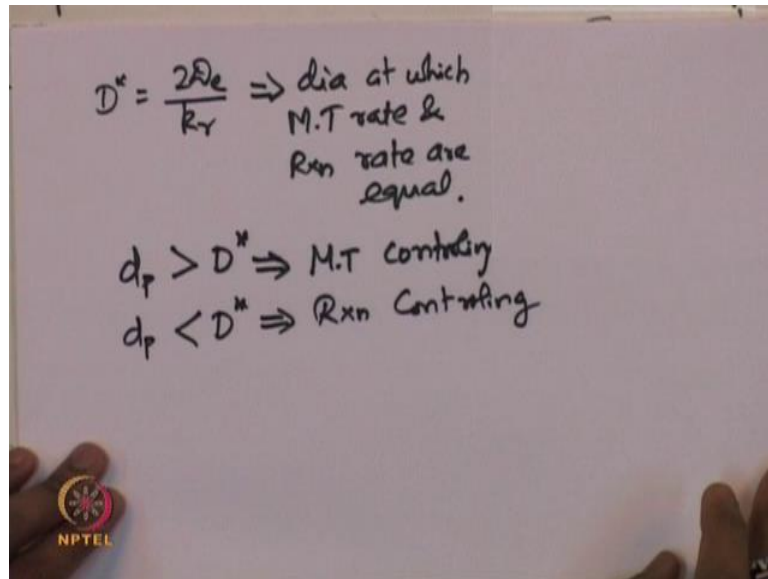 D* = 2De/kr ⇒ dia at which
M.T rate &
Rxn rate are
equal.
dp > D* ⇒ M.T Controling
dp < D* ⇒ Rxn Controling
NPTEL